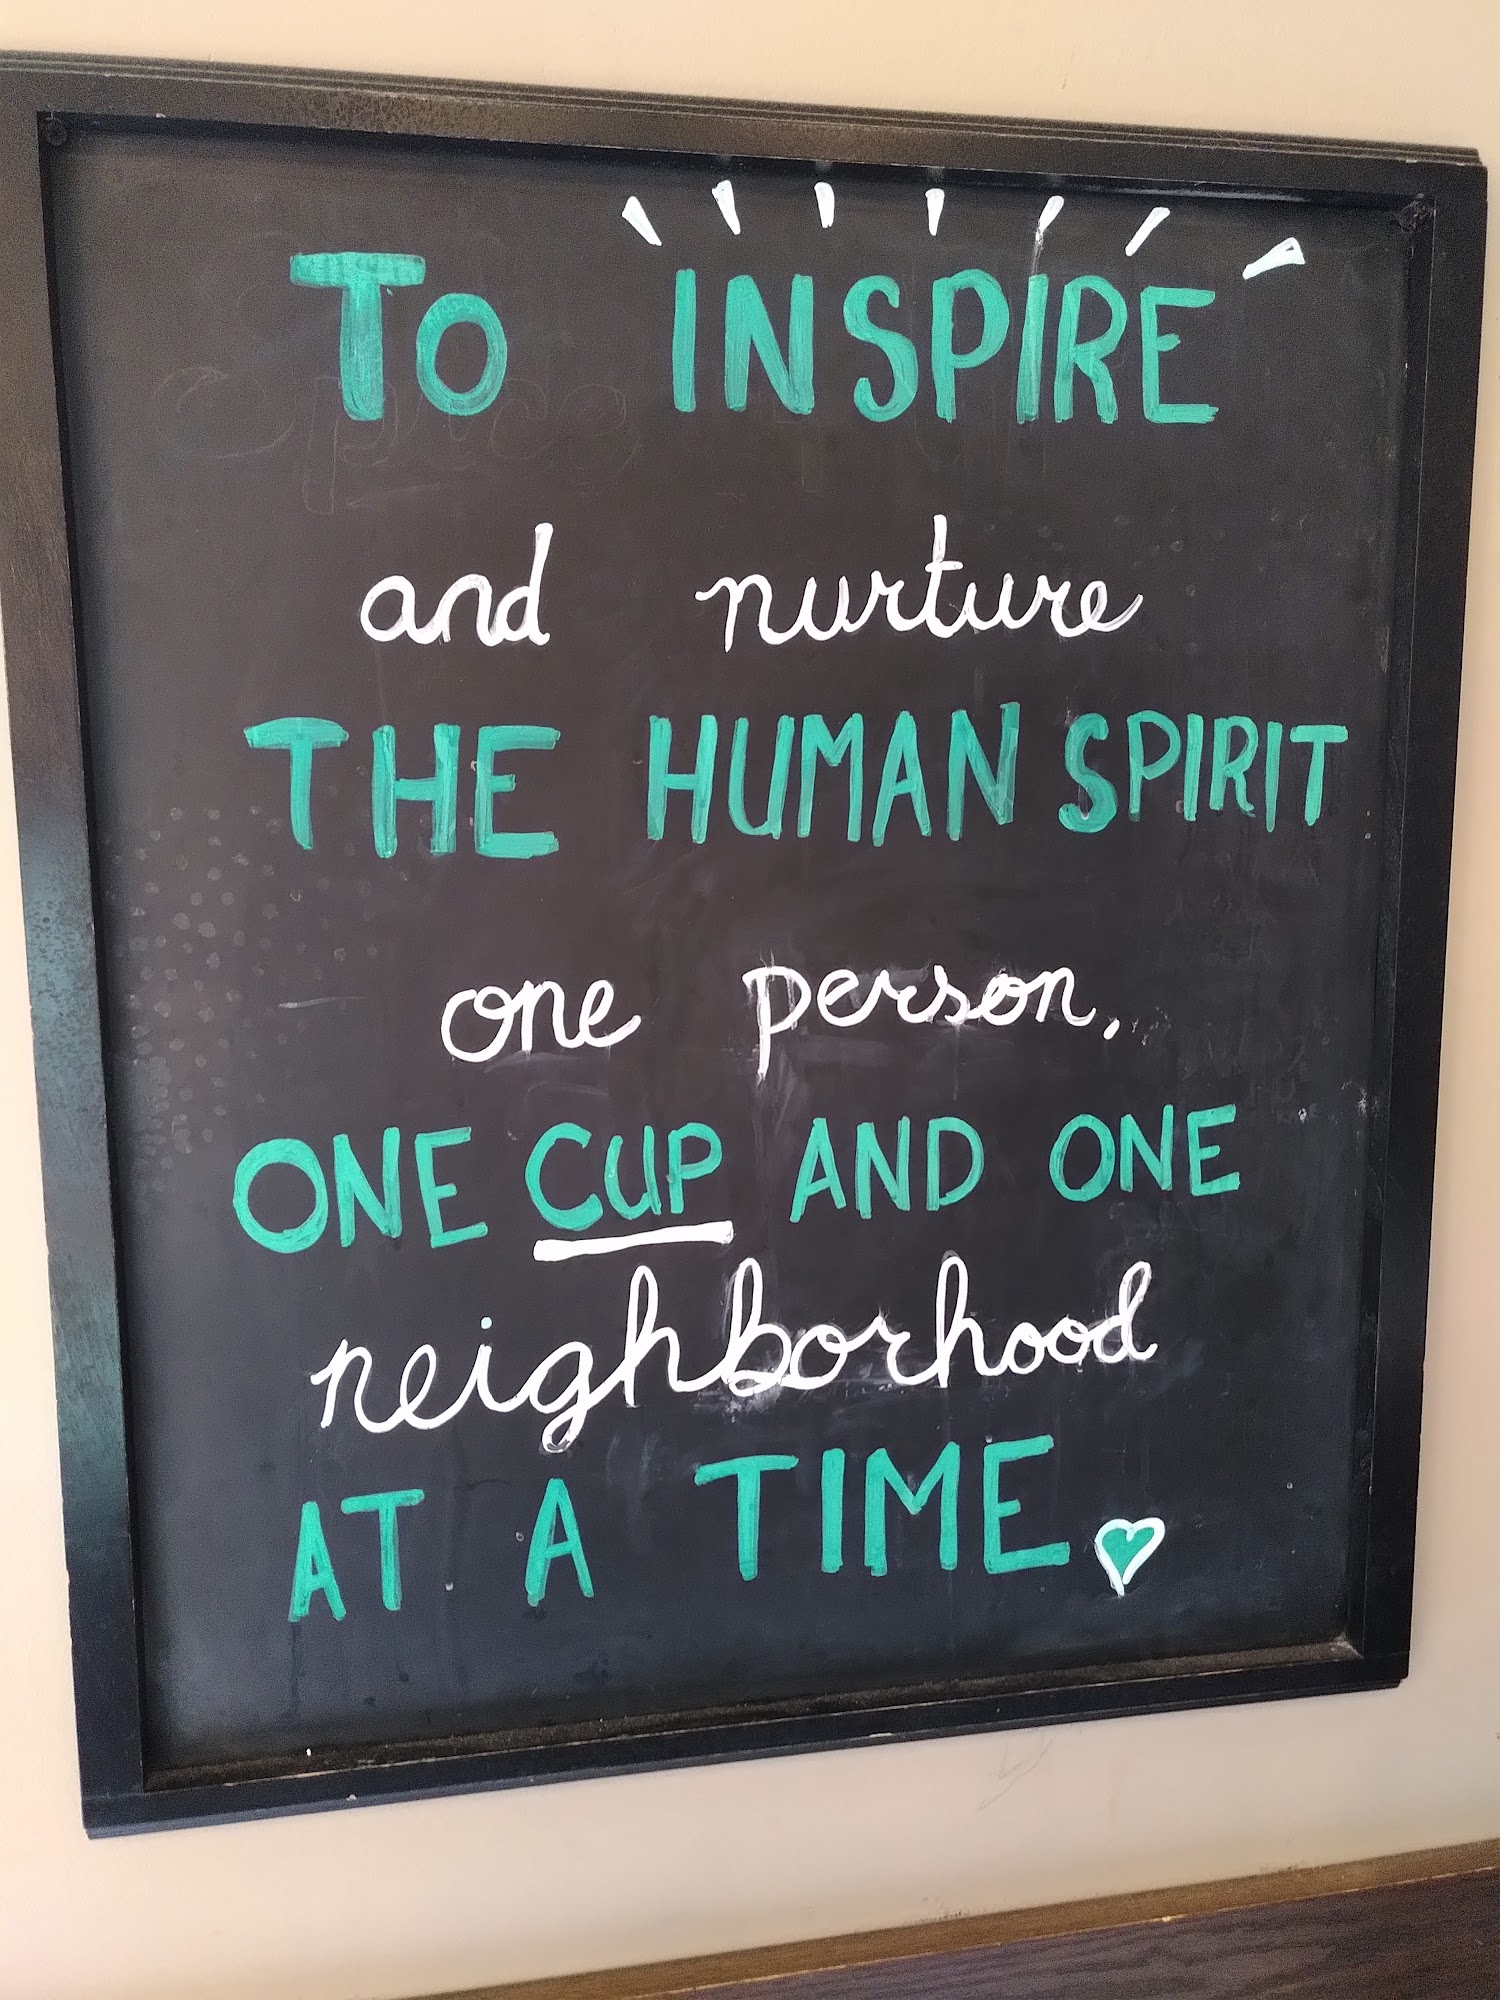 TO INSPIRE
and nurture
THE HUMAN SPIRIT
one person,
ONE CUP AND ONE
neighborhood
AT A TIME